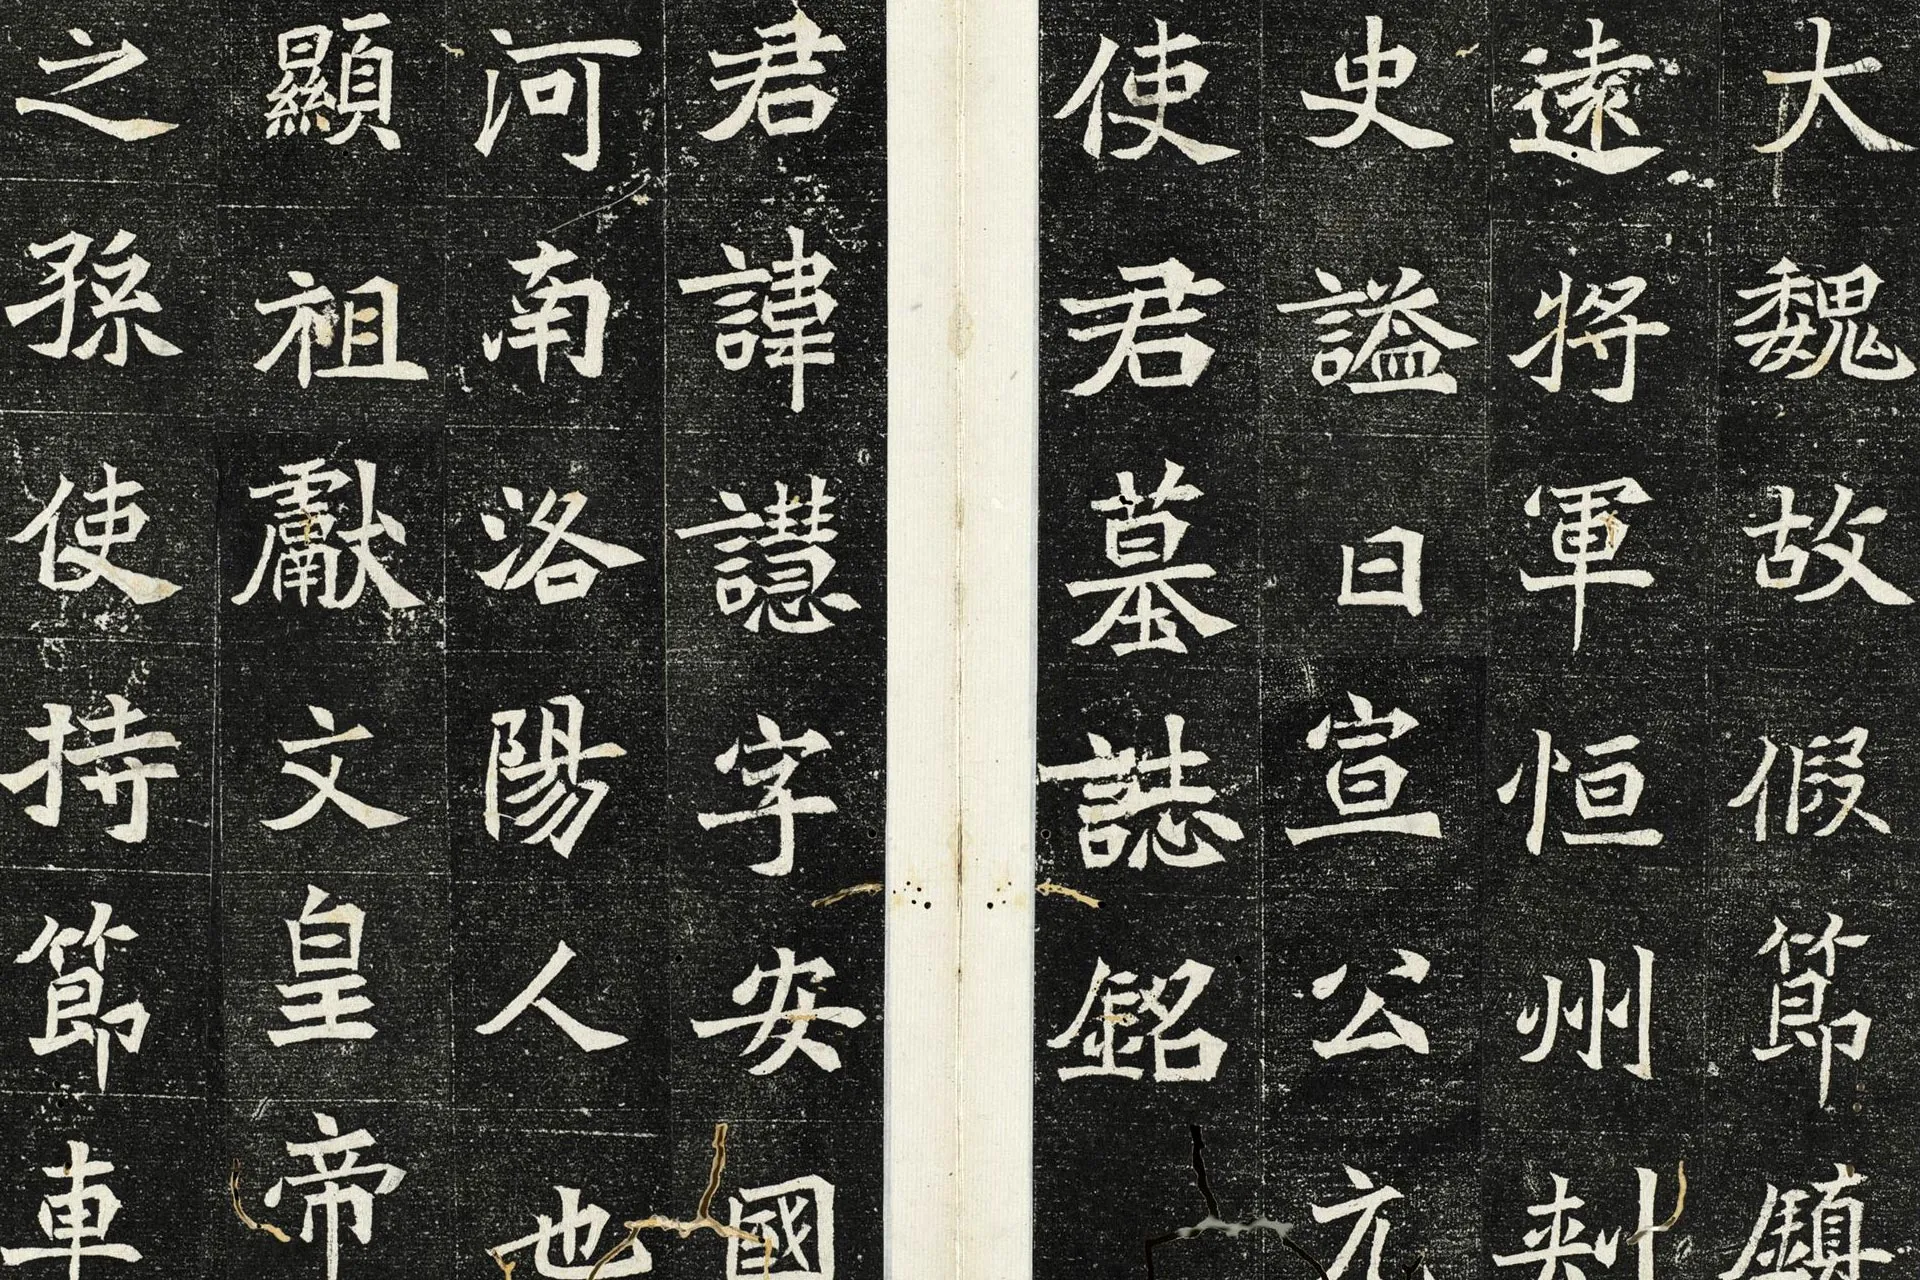 大魏故假節鎮
遠將軍恒州刾
史謚曰宣公元
使君墓誌銘
君諱譿字安國
河南洛陽人也
顯祖獻文皇帝
之孫使持節車